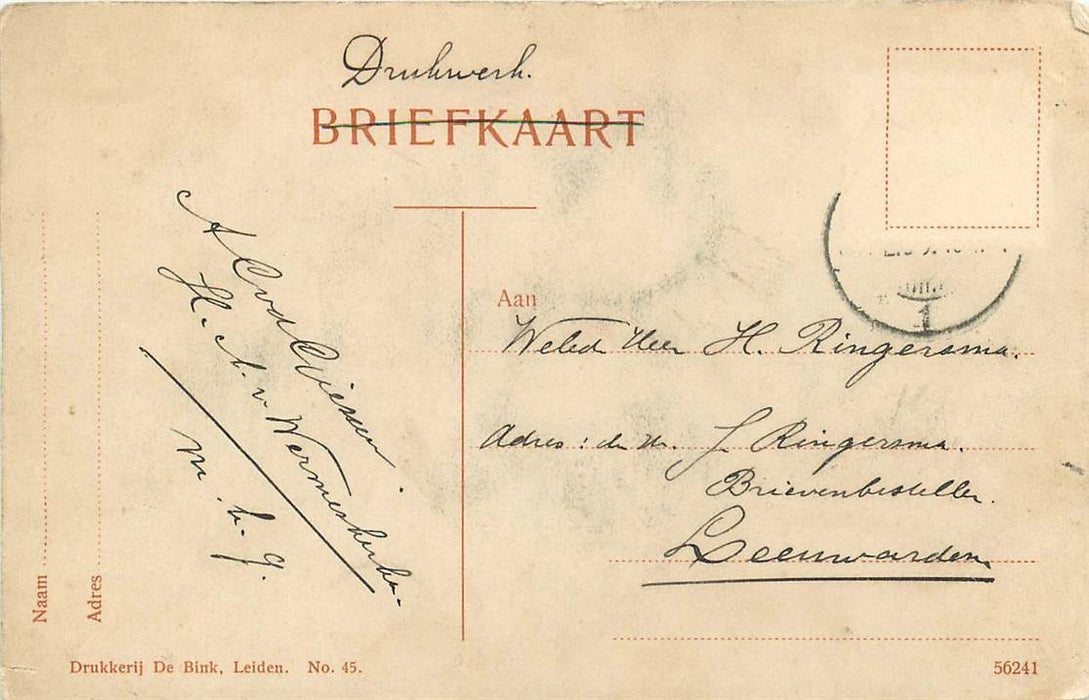 Drukwerk.
BRIEFKAART
Aan
Weled Heer H. Ringersma.
Adres: de Hr. J. Ringersma.
Brievenbesteller.
Leeuwarden
H. A. v Wermeskerken.
m. b. g.
1
Naam
Adres
Drukkerij De Bink, Leiden. No. 45.
56241